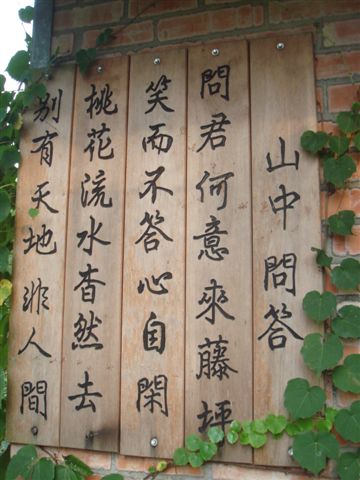 山中問答
問君何意來藤坪
笑而不答心自閑
桃花流水杳然去
別有天地非人間